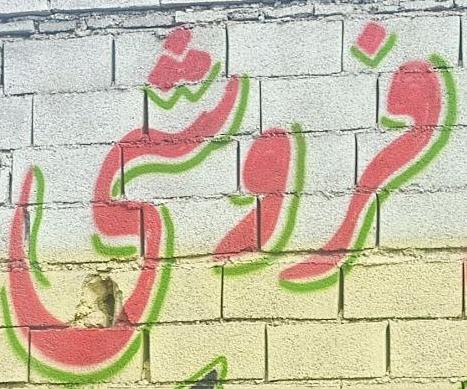 فروشی